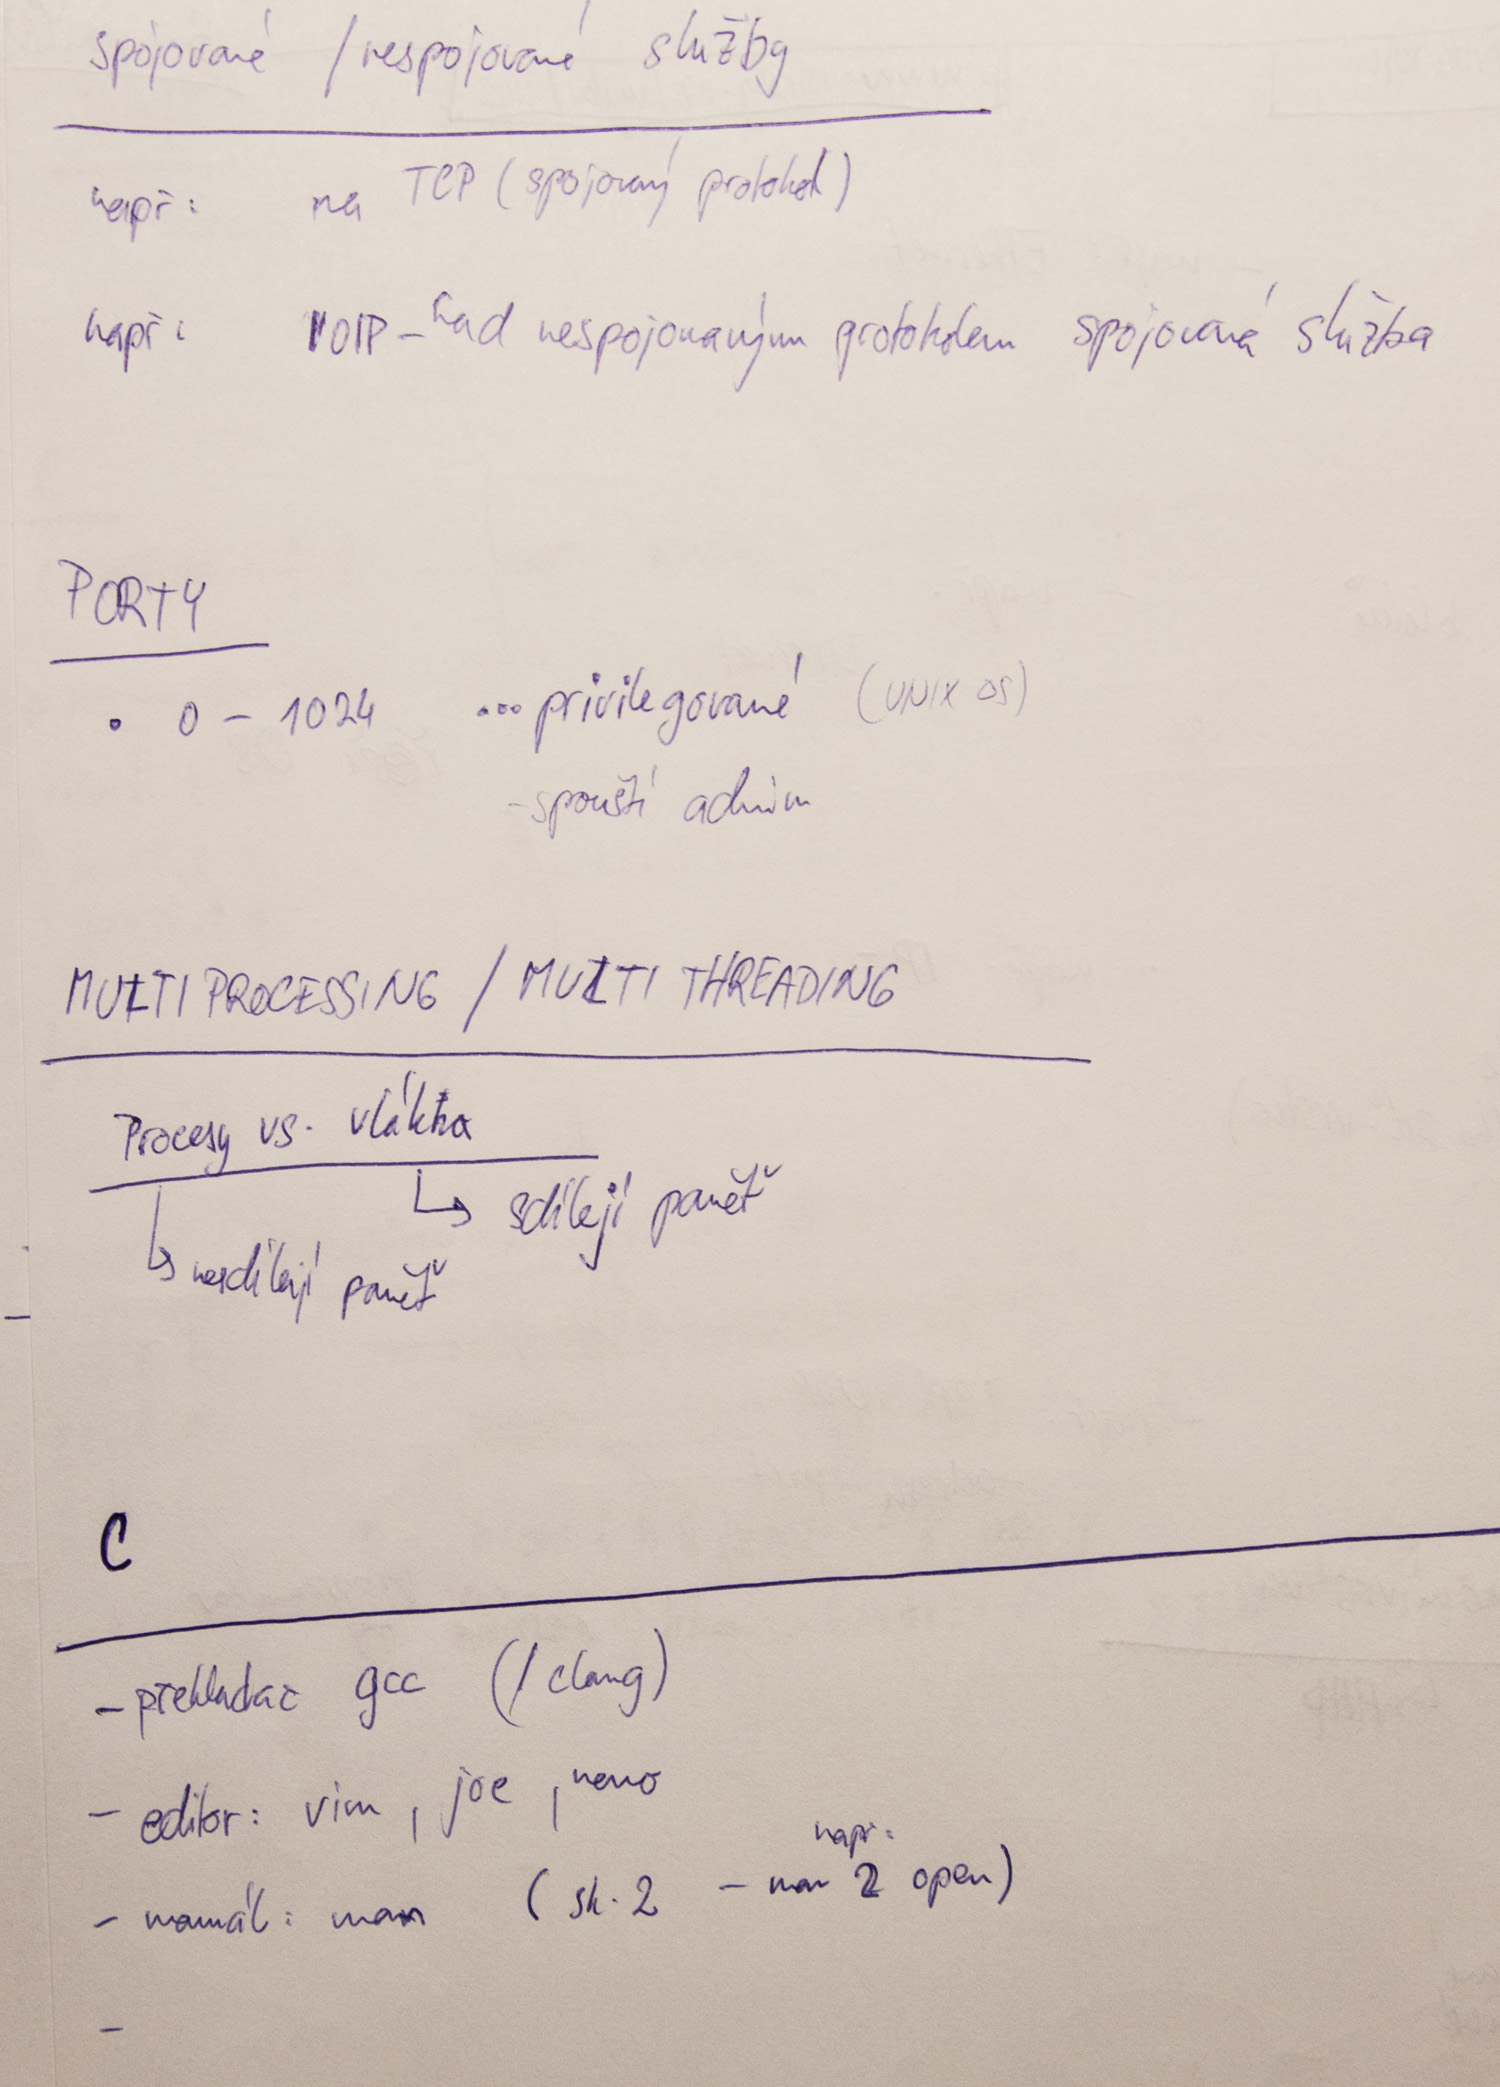 spojované / nespojované služby
např: na TCP (spojovaný protokol)
např: VOIP - nad nespojovaným protokolem spojovaná služba
PORTY
• 0 - 1024 ... privilegované (UNIX OS)
- spouští admin
MULTI PROCESSING / MULTI THREADING
Procesy vs. vlákna
sdílejí paměť
nesdílejí paměť
C
- překladač gcc (/clang)
- editor: vim, joe, nano
např:
- manuál: man (sk. 2 - man 2 open)
-